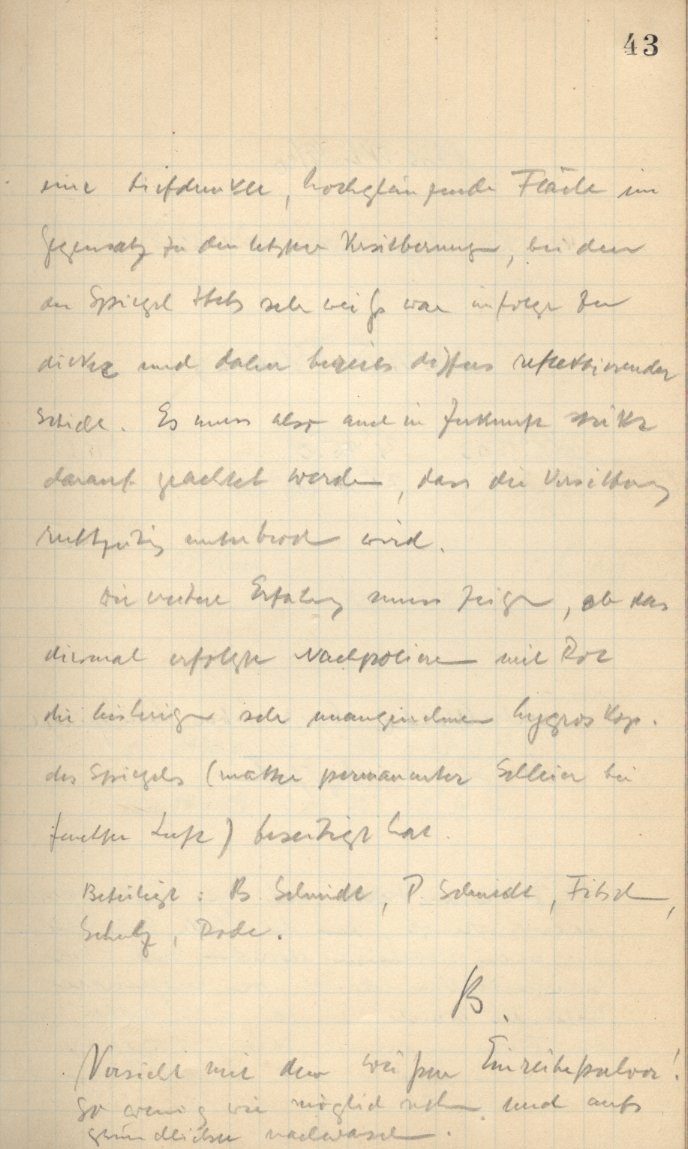 43
eine tiefdunkle, hochglänzende Fläche im
Gegensatz zu den letzten Versilberungen, bei denen
der Spiegel stets sehr weiss war infolge der
dicken und daher bereits diffus reflektierenden
Schicht. Es muss also auch in Zukunft strikte
darauf geachtet werden, dass die Versilberung
rechtzeitig unterbrochen wird.
Die weitere Erfahrung muss zeigen, ob das
diesmal erfolgte Nachpolieren mit Rot
die bisherigen sehr unangenehmen hygroskop.
des Spiegels (matter permanenter Schleier bei
feuchter Luft) beseitigt hat.
Beteiligt: B. Schmidt, P. Schmidt,
Schulz, Dode.
B.
Vorsicht mit dem weissen Einreibepulver!
So wenig wie möglich nehmen und aufs
gründlichste nachwaschen.